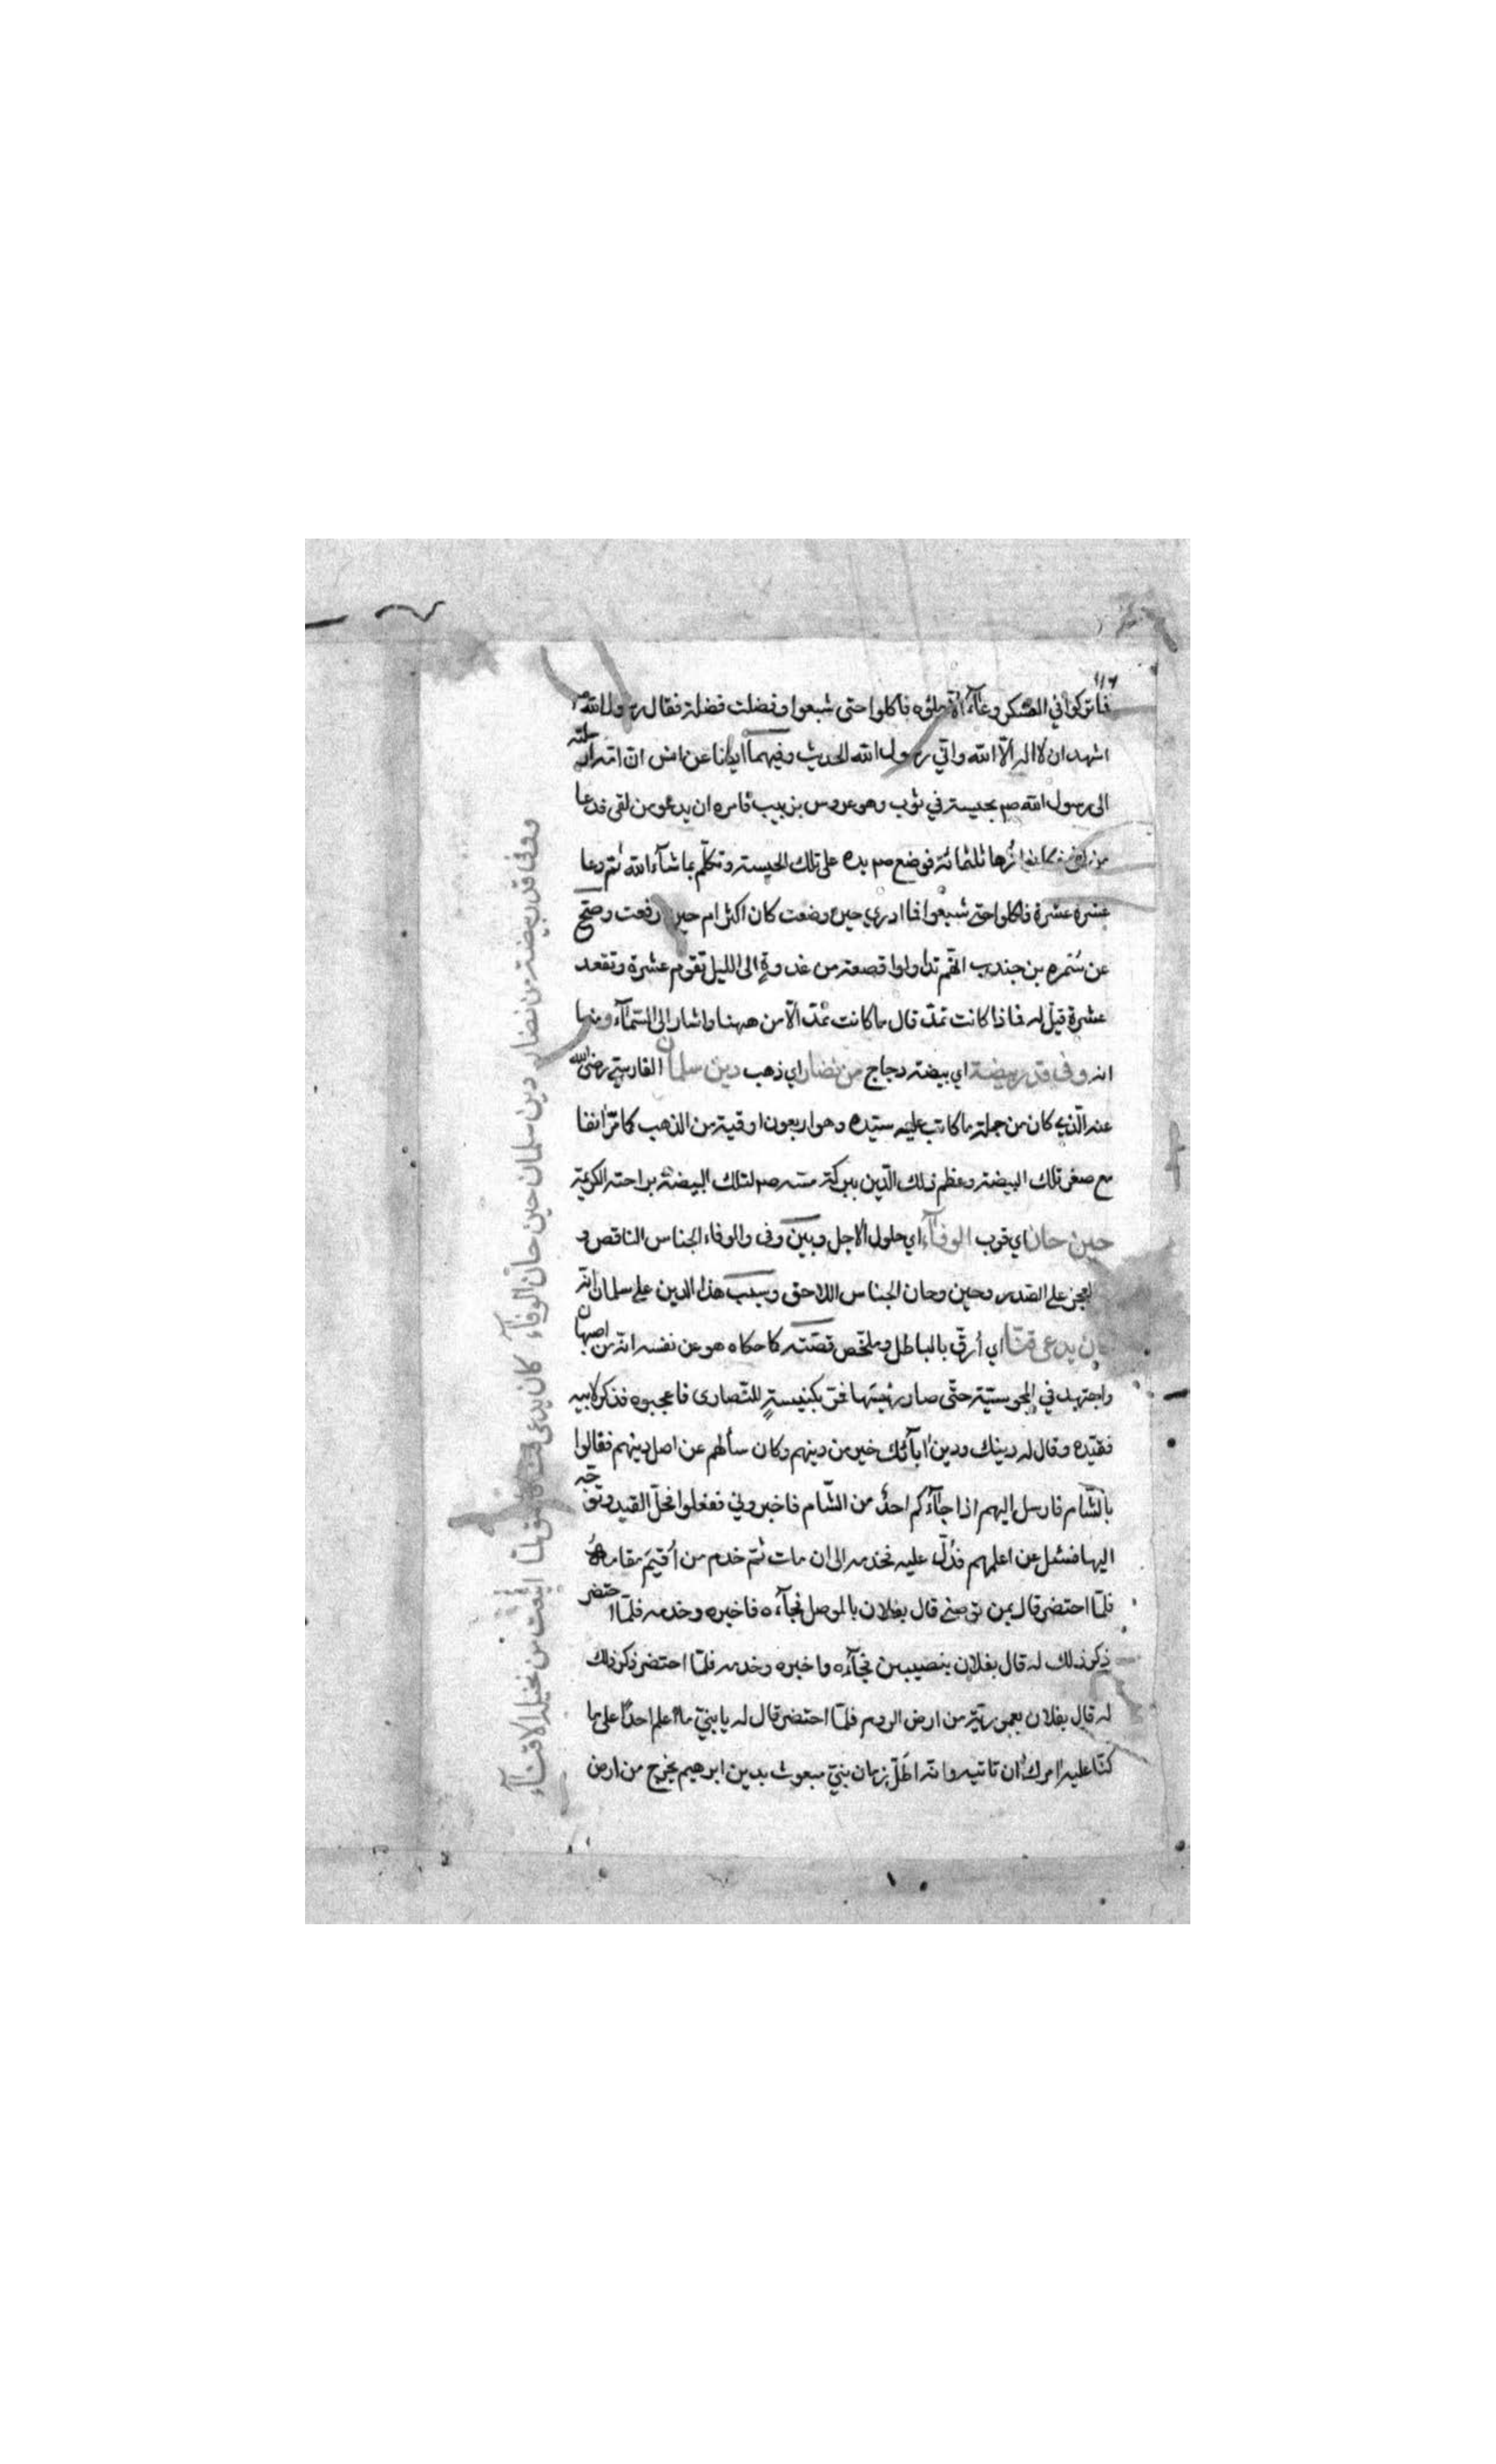 ١١٦
فما تركوا في العسكر وعاء الا ملؤه فاكلوا حتى شبعوا وفضلت فضلة فقال رسول الله صم
اشهد ان لا اله الا الله واني رسول الله الحديث وفيهما ايضا عن انس ان امه ارسلته
الى رسول الله صم بحيسة في ثوب وهو عروس بزينب فامره ان يدعو من لقى فدعا
زهاء ثلثمائة فوضع صم يده على تلك الحيسة وتكلم بما شآء الله ثم دعا
عشرة عشرة فاكلوا حتى شبعوا فما ادري حين وضعت كان اكثر ام حين رفعت وصح
عن سمره بن جندب انهم تداولوا قصعة من غدوة الى الليل تقوم عشرة وتقعد
عشرة قيل له فماذا كانت تمد قال ما كانت تمد الا من ههنا واشار الى السمآء ومنها
انه وفى قدر بيضة اي بيضة دجاج من نضار اي ذهب دين سلمان الفارسي رضي الله
عنه الذي كان من جملة ما كاتب عليه سيده وهو اربعون اوقية من الذهب كما مر انفا
مع صغر تلك البيضة وعظم ذلك الدين ببركة مسه صم لتلك البيضة براحته الكريمة
حين حان اي قرب الوفآء اي حلول الاجل وبين وفى والوفاء الجناس الناقص ورد
العجز على الصدر وحين وحان الجناس اللاحق وسبب هذا الدين على سلمان انه
كان يدعى قنا اي أرق بالباطل وملخص قصته كما حكاه هو عن نفسه انه من اصبهان
واجتهد في المجوسية حتى صار رئيسها فمر بكنيسة للنصارى فاعجبوه فذكر لابيه
فقيده وقال له دينك ودين ابآئك خير من دينهم وكان سألهم عن اصل دينهم فقالوا
بالشام فارسل اليهم اذا جآءكم احد من الشام فاخبروني ففعلوا فحل القيد وتوجه
اليها فسئل عن اعلمهم فدل عليه فخدمه الى ان مات ثم خدم من أقيم مقامه
فلما احتضر قال بمن توصني قال بفلان بالموصل فجآءه فاخبره وخدمه فلما احتضر
ذكر ذلك له قال بفلان بنصيبين فجآءه واخبره وخدمه فلما احتضر ذكر ذلك
له قال بفلان بعمورية من ارض الروم فلما احتضر قال له يا بني ما اعلم احدا على ما
كنا عليه امرك ان تاتيه وانه اظل زمان نبي مبعوث بدين ابرهيم يخرج من ارض
ووفى قدر بيضة من نضار دين سلمان حين حان الوفآء كان يدعى قنا فاعتق لما اينعت من نخيله الاقنآء